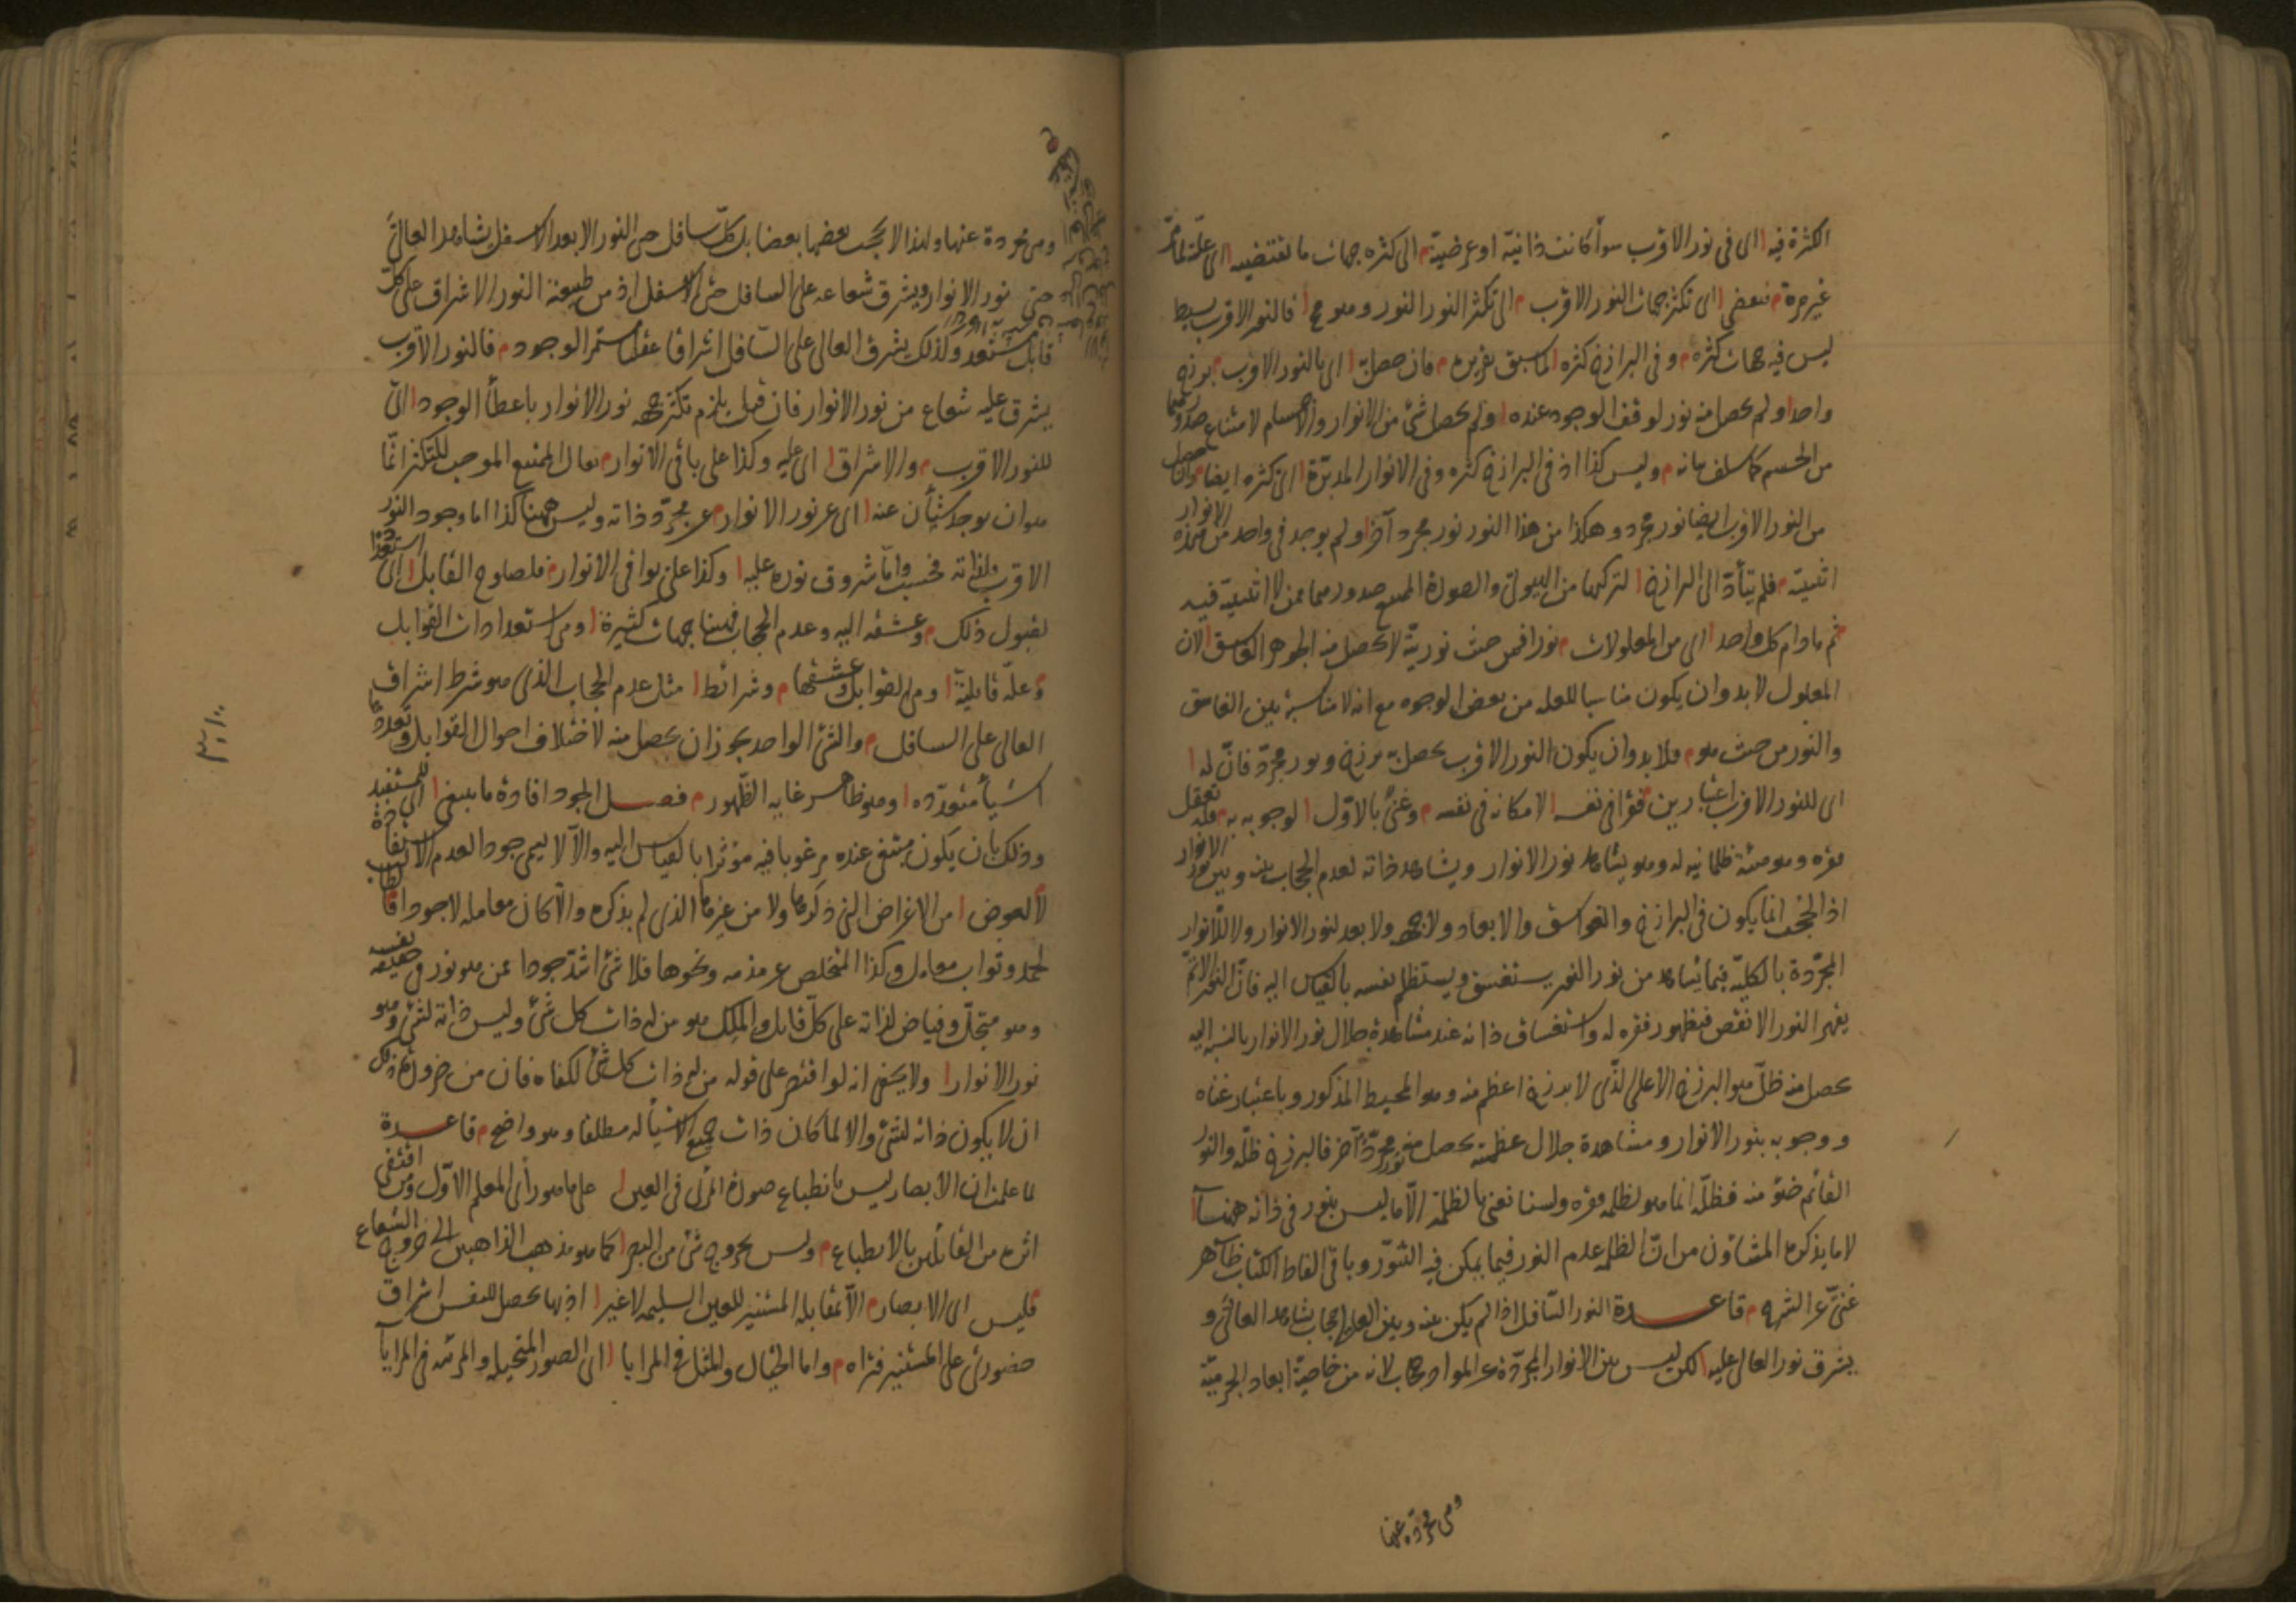 الكثرة فيه اى فى نور الاقرب سواء كانت ذاتية او عرضية الى كثرة جهات ما تقتضيه الى علة تامة
غير مرة فيفضى اى تكثر جهات النور الاقرب الى تكثر النور النور وهو مح فالنور الاقرب بسيط
ليس فيه جهات كثرة وفى البرازخ كثرة لما سبق تقريره فان حصل اى بالنور الاقرب برزخ
واحد ولم يحصل منه نور لوقف الوجود عنده ولم يحصل شئ من الانوار والاجسام لامتناع صدورهما
من الجسم كما سلف بيانه وليس كذا اذ فى البرازخ كثرة وفى الانوار المدبرة اى كثرة ايضا وان حصل
من النور الاقرب ايضا نور مجرد وهكذا من هذا النور نور مجرد آخر ولم يوجد فى واحد من هذه الانوار
اثنينية فلم يتأد الى البرازخ لتركبها من الهيولى والصورة الممتنع صدورهما ممن لا اثنينية فيه
ثم ما دام كل واحد اى من المعلولات نورا فمن حيث نوريته لا يحصل منه الجوهر الغاسق لان
المعلول لا بد وان يكون مناسبا للعلة من بعض الوجوه مع انه لا مناسبة بين الغاسق
والنور من حيث هو فلا بد وان يكون النور الاقرب يحصل به برزخ ونور مجرد فان له
اى للنور الاقرب اعتبارين فقرا فى نفسه لامكانه فى نفسه وغنى بالاول لوجوبه به فله تعقل
فقره وهو هيئة ظلمانية له وهو يشاهد نور الانوار ويشاهد ذاته لعدم الحجاب بينه وبين نور الانوار
اذ الحجب انما يكون فى البرازخ والغواسق والابعاد ولا جهة ولا بعد لنور الانوار ولا للانوار
المجردة بالكلية فيما يشاهد من نور النور يستغسق ويستظلم نفسه بالقياس اليه فان النور الاتم
يقهر النور الانقص فبظهور فقره له واستغساق ذاته عند مشاهدة جلال نور الانوار بالنسبة اليه
يحصل منه ظل هو البرزخ الاعلى الذى لا برزخ اعظم منه وهو المحيط المذكور وباعتبار غناه
ووجوبه بنور الانوار ومشاهدة جلال عظمته يحصل منه نور مجرد آخر فالبرزخ ظله والنور
القائم ضوء منه فظله انما هو لظلمة فقره ولسنا نعنى بالظلمة الا ما ليس بنور فى ذاته ههنا
لا ما يذكره المشاؤن من ان الظلمة عدم النور فيما يمكن فيه التنور وباقى الفاظ الكتاب ظاهر
غنى عن الشرح قاعدة النور السافل اذا لم يكن بينه وبين العالى حجاب يشاهد العالى و
يشرق نور العالى عليه لكن ليس بين الانوار المجردة عن المواد حجاب لانه من خاصية ابعاد الجرمية
وهى مجردة عنها
وهى مجردة عنها ولهذا لا يحجب بعضها بعضا بل كل سافل حتى النور الابعد الاسفل يشاهد العالى
حتى نور الانوار ويشرق شعاعه على السافل حتى الاسفل اذ من طبيعة النور الاشراق على كل
قابل مستعد وكذلك يشرق العالى على السافل اشراقا عقليا مستمر الوجود فالنور الاقرب
يشرق عليه شعاع من نور الانوار فان قيل يلزم تكثر جهة نور الانوار باعطاء الوجود اى
للنور الاقرب والاشراق اى عليه وكذا على باقى الانوار يقال الممتنع الموجب للتكثر انما
هو ان يوجد شيئان عنه اى عن نور الانوار عن مجرد ذاته وليس ههنا كذا اما وجود النور
الاقرب فلذاته فحسب واما شروق نوره عليه وكذا على بواقى الانوار فلصلوح القابل اى استعداده
لقبول ذلك وعشقه اليه وعدم الحجاب فهينا جهات كثيرة وهى استعدادات القوابل
وعلة قابلية وهى القوابل وعشقها وشرائط مثل عدم الحجاب الذى هو شرط اشراق
العالى على السافل والشئ الواحد يجوز ان يحصل منه لاختلاف احوال القوابل وتعددها
اشياء متعددة وهو ظاهر غاية الظهور فصل الجود افادة ما ينبغى اى للمستفيد
وذلك بان يكون مبتغى عنده مرغوبا فيه مؤثرا بالقياس اليه والا لا يسمى جودا لعدم
لا لعوض من الاغراض التى ذكرها ولا من غيرها الذى لم يذكره والا كان معاملة لا جودا فالطالب
لحمد وثواب معامل وكذا المتخلص عن مذمة ونحوها فلا شئ اشد جودا ممن هو نور فى حقيقة نفسه
وهو متجل وفياض لذاته على كل قابل والملك هو من له ذات كل شئ وليس ذاته لشئ وهو
نور الانوار ولا يخفى انه لو اقتصر على قوله من له ذات كل شئ لكفاه فان من ضرورة ذلك
ان لا يكون ذاته لشئ والا لما كان ذات جميع الاشياء له مطلقا وهو واضح قاعدة
لما علمت ان الابصار ليس بانطباع صورة المرئى فى العين على ما هو رأى المعلم الاول ومن اقتفى
اثره من القائلين بالانطباع وليس بخروج شئ من البصر كما هو مذهب الذاهبين الى خروج الشعاع
فليس اى الابصار الا بمقابلة المستنير للعين السليمة لا غير اذ بها يحصل للنفس اشراق
حضورى على المستنير فتراه واما الخيال والمثل فى المرايا اى الصور المتخيلة والمرئية فى المرايا